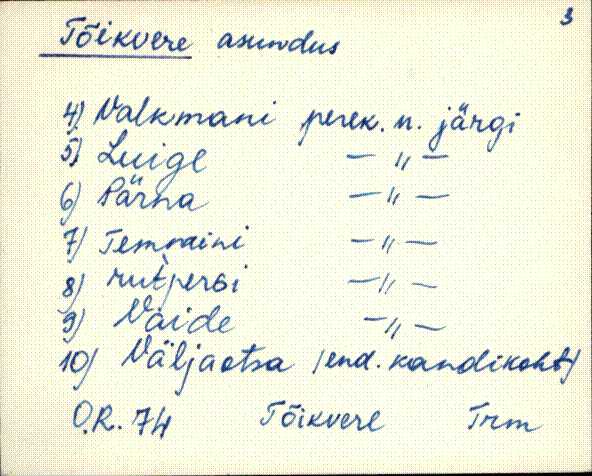 3
Tõikvere asundus
4) Valkmani perek. n. järgi
5) Luige — „ —
6) Pärna — „ —
7) Temmini — „ —
8) — „ —
9) Vaide — „ —
10) Väljaotsa (end. kandikoht)
O.R. 74 Tõikvere Trm